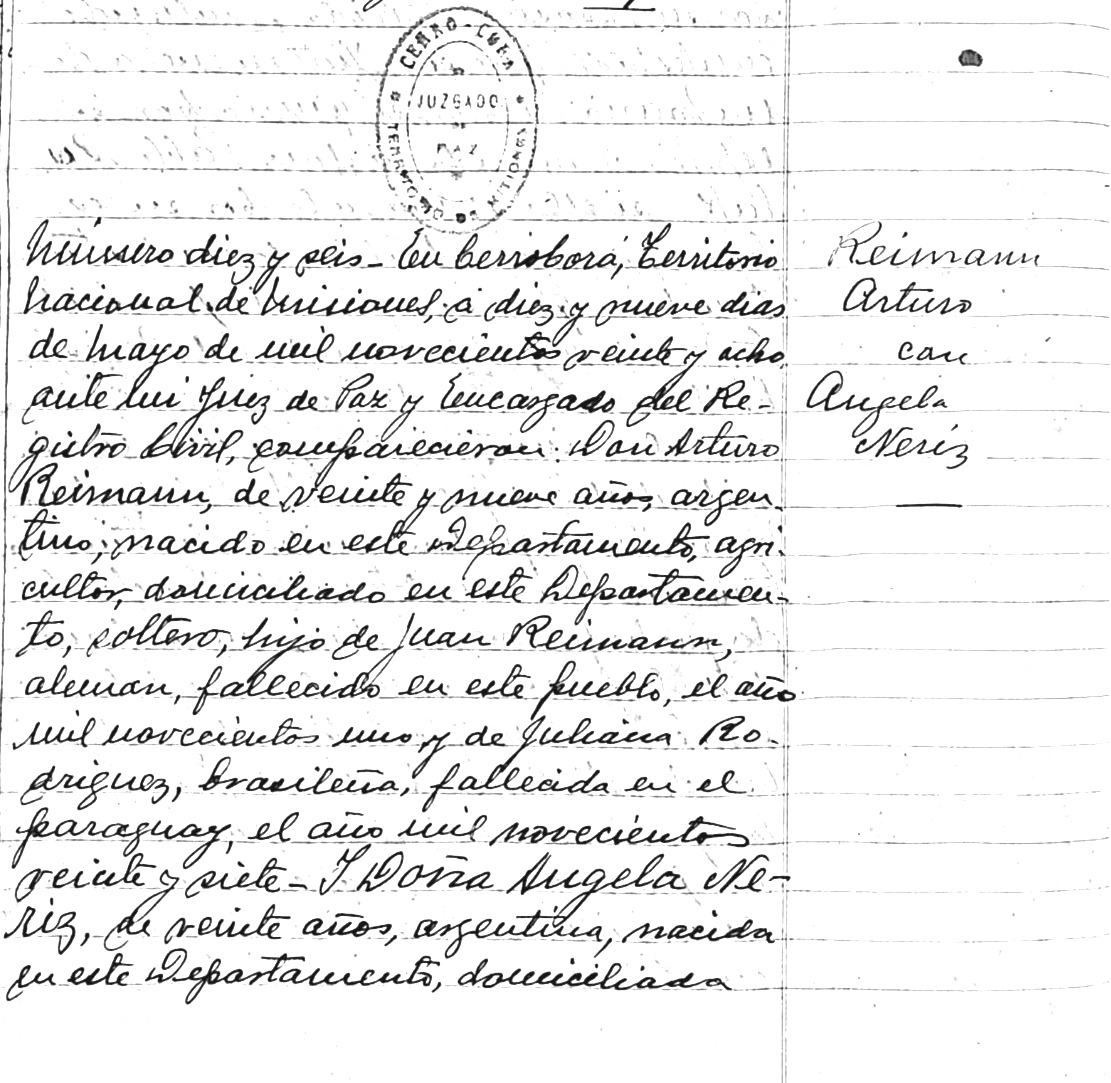 CERRO-CORÁ
JUZGADO
DE
PAZ
TERRITORIO DE MISIONES
Reimann
Arturo
con
Angela
Neriz
Número diez y seis - En Cerrocorá, Territorio
Nacional de Misiones, á diez y nueve dias
de Mayo de mil novecientos veinte y ocho,
ante mi Juez de Paz y Encargado del Re-
gistro Civil, comparecieron: Don Arturo
Reimann, de veinte y nueve años, argen-
tino, nacido en este Departamento, agri-
cultor, domiciliado en este Departamen-
to, soltero, hijo de Juan Reimann,
aleman, fallecido en este pueblo, el año
mil novecientos uno y de Juliana Ro-
driguez, brasileña, fallecida en el
paraguay, el año mil novecientos
veinte y siete - Y Doña Angela Ne-
riz, de veinte años, argentina, nacida
en este Departamento, domiciliada